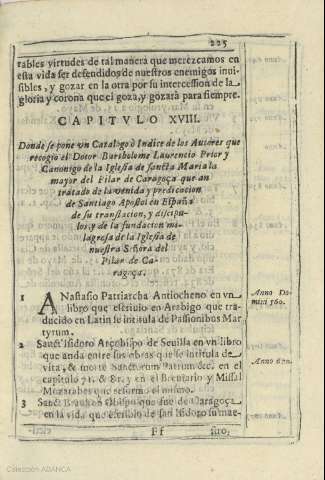 225
rables virtudes de tal manera que merezcamos en
esta vida ser defendidos de nuestros enemigos inui-
sibles, y gozar en la otra por su intercession de la
gloria y corona que el goza, y gozarà para siempre.
CAPITVLO XVIII.
Donde se pone vn Catalogo ò Indice de los Autores que
recogio el Dotor Bartholome Laurencio Prior y
Canonigo de la Iglesia de sancta Maria la
mayor del Pilar de Caragoça que an
tratado de la venida y predicacion
de Santiago Apostol en España
de su translacion, y discipu-
los, y de la fundacion mi-
lagrosa de la Iglesia de
nuestra Señora del
Pilar de Ca-
ragoça.
1 ANastasio Patriarcha Antiocheno en vn
libro que escriuio en Arabigo que tra-
ducido en Latin se intitula de Passionibus Mar
tyrum.
Anno Do-
mini 560.
2 Sanct Isidoro Arçobispo de Seuilla en vn libro
que anda entre sus obras que se intitula de
vita, & morte Sanctorum Patrum &c. en el
capitulo 71. & 81. y en el Breuiario y Missal
Mozarabes que reformò el mismo.
Anno 620.
3 Sanct Braulio Obispo que fue de Caragoça
en la vida que escribio de san Isidoro su mae-
Ff
stro,
Colección ABANCA